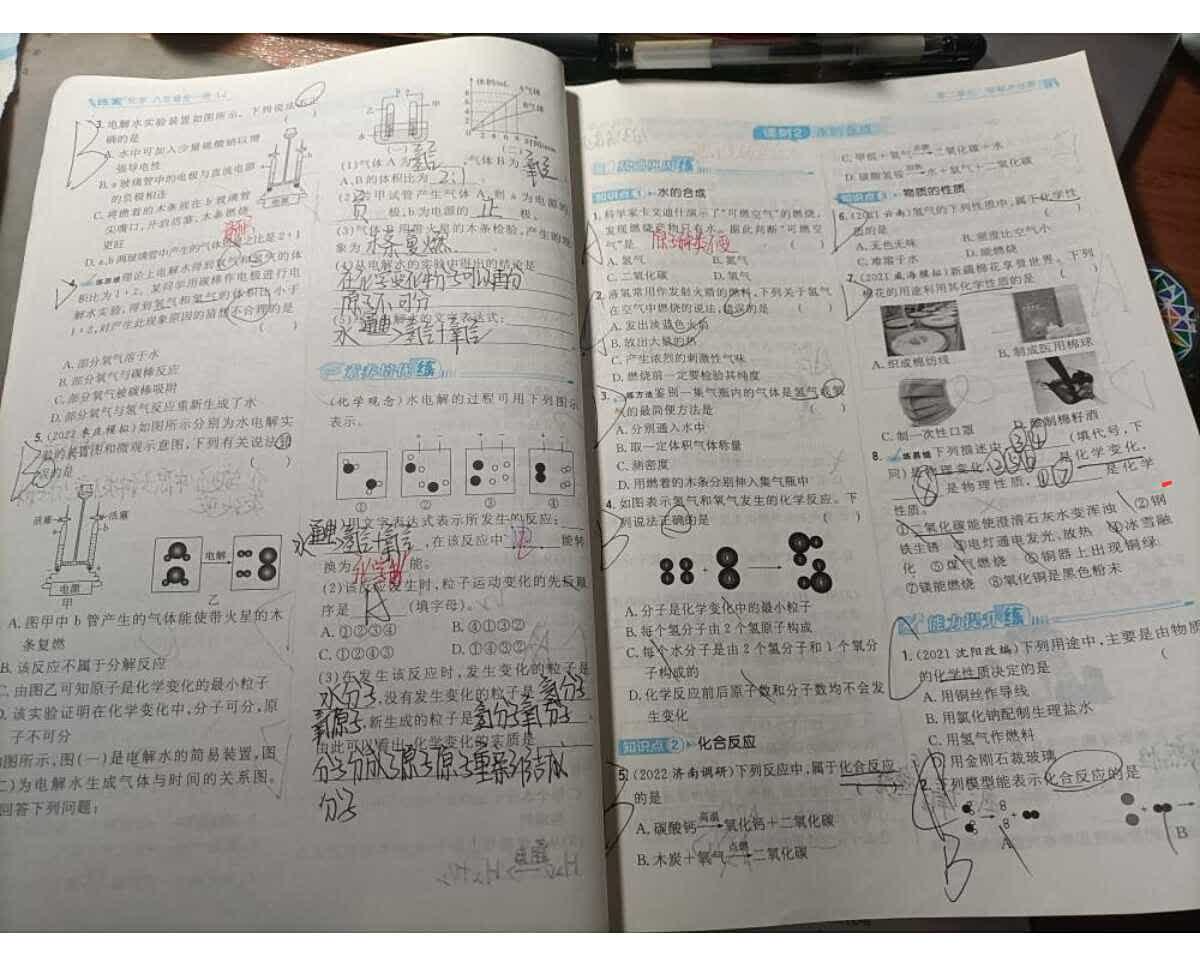 3. 电解水实验装置如图所示。下列说法不正
确的是
A. 水中可加入少量硫酸钠以增
强导电性
B. a玻璃管中的电极与直流电源
的负极相连
C. 将燃着的木条放在b玻璃管
尖嘴口,开启活塞,木条燃烧
更旺
D. a、b两玻璃管中产生的气体
之比是2∶1
理论上电解水得到氧气和氢气的体
积比为1∶2。某同学用碳棒作电极进行电
解水实验,得到氧气和氢气的体积比小于
1∶2,对产生此现象原因的猜想不合理的是
( )
A. 部分氧气溶于水
B. 部分氧气与碳棒反应
C. 部分氧气被碳棒吸附
D. 部分氧气与氢气反应重新生成了水
5. (2022枣庄模拟)如图所示分别为水电解实
验的装置图和微观示意图,下列有关说法错
误的是 ( )
活塞 活塞
a b
电源
甲
电解
乙
A. 图甲中b管产生的气体能使带火星的木
条复燃
B. 该反应不属于分解反应
C. 由图乙可知原子是化学变化的最小粒子
D. 该实验证明在化学变化中,分子可分,原
子不可分
如图所示,图(一)是电解水的简易装置,图
(二)为电解水生成气体与时间的关系图。
回答下列问题:
体积/mL
A气体
B气体
乙 甲
(一) (二)
(1)气体A为 氢气 ,气体B为 氧气
A、B的体积比为 2:1
(2)若甲试管产生气体A,则a为电源的
负 极,b为电源的 正 极。
(3)气体B用带火星的木条检验,产生的现
象为 木条复燃
(4)从电解水的实验中得出的结论是
在化学变化中分子可以再分
原子不可分
(5)电解水的文字表达式:
水 通电 氢气+氧气
(化学观念)水电解的过程可用下列图示
表示。
① ② ③ ④
(1)用文字表达式表示所发生的反应:
水 通电 氢气+氧气 ,在该反应中 电 能转
换为 化学 能。
(2)该反应发生时,粒子运动变化的先后顺
序是 (填字母)。
A. ①②③④ B. ④①③②
C. ①②④③ D. ①④③②
(3)在发生该反应时,发生变化的粒子是
水分子,没有发生变化的粒子是
氧原子,新生成的粒子是氢分子氧分子
由此可以看出,化学变化的实质是
分子分成原子原子重新结合成
分子
课时2 水的合成
知识点1 水的合成
1. 科学家卡文迪什演示了“可燃空气”的燃烧,
发现燃烧产物只有水。据此判断“可燃空
气”是 ( )
A. 氢气 B. 氮气
C. 二氧化碳 D. 氧气
2. 液氢常用作发射火箭的燃料,下列关于氢气
在空气中燃烧的说法,错误的是 ( )
A. 发出淡蓝色火焰
B. 放出大量的热
C. 产生浓烈的刺激性气味
D. 燃烧前一定要检验其纯度
3. 鉴别一集气瓶内的气体是氢气或氧
气的最简便方法是 ( )
A. 分别通入水中
B. 取一定体积气体称量
C. 测密度
D. 用燃着的木条分别伸入集气瓶中
4. 如图表示氢气和氧气发生的化学反应。下
列说法正确的是 ( )
A. 分子是化学变化中的最小粒子
B. 每个氢分子由2个氢原子构成
C. 每个水分子是由2个氢分子和1个氧分
子构成的
D. 化学反应前后原子数和分子数均不会发
生变化
知识点2 化合反应
5. (2022济南调研)下列反应中,属于化合反应
的是 ( )
A. 碳酸钙 高温 氧化钙+二氧化碳
B. 木炭+氧气 点燃 二氧化碳
C. 甲烷+氧气 点燃 二氧化碳+水
D. 碳酸氢铵 水+氨气+二氧化碳
知识点3 物质的性质
6. (2021云南)氢气的下列性质中,属于化学性
质的是 ( )
A. 无色无味 B. 密度比空气小
C. 难溶于水 D. 能燃烧
7. (2021威海模拟)新疆棉花享誉世界。下列
棉花的用途利用其化学性质的是 ( )
A. 织成棉纺线 B. 制成医用棉球
C. 制一次性口罩 D. 酿制棉籽酒
8. 下列描述中 ③④ (填代号,下
同)是物理变化, ②⑤⑥ 是化学变化,
⑧ 是物理性质, ①⑦ 是化学
性质。
①二氧化碳能使澄清石灰水变浑浊 ②钢
铁生锈 ③电灯通电发光、放热 ④冰雪融
化 ⑤煤气燃烧 ⑥铜器上出现铜绿
⑦镁能燃烧 ⑧氧化铜是黑色粉末
能力提升练
1. (2021沈阳改编)下列用途中,主要是由物质
的化学性质决定的是 (
A. 用铜丝作导线
B. 用氯化钠配制生理盐水
C. 用氢气作燃料
D. 用金刚石裁玻璃
2. 下列模型能表示化合反应的是
A B